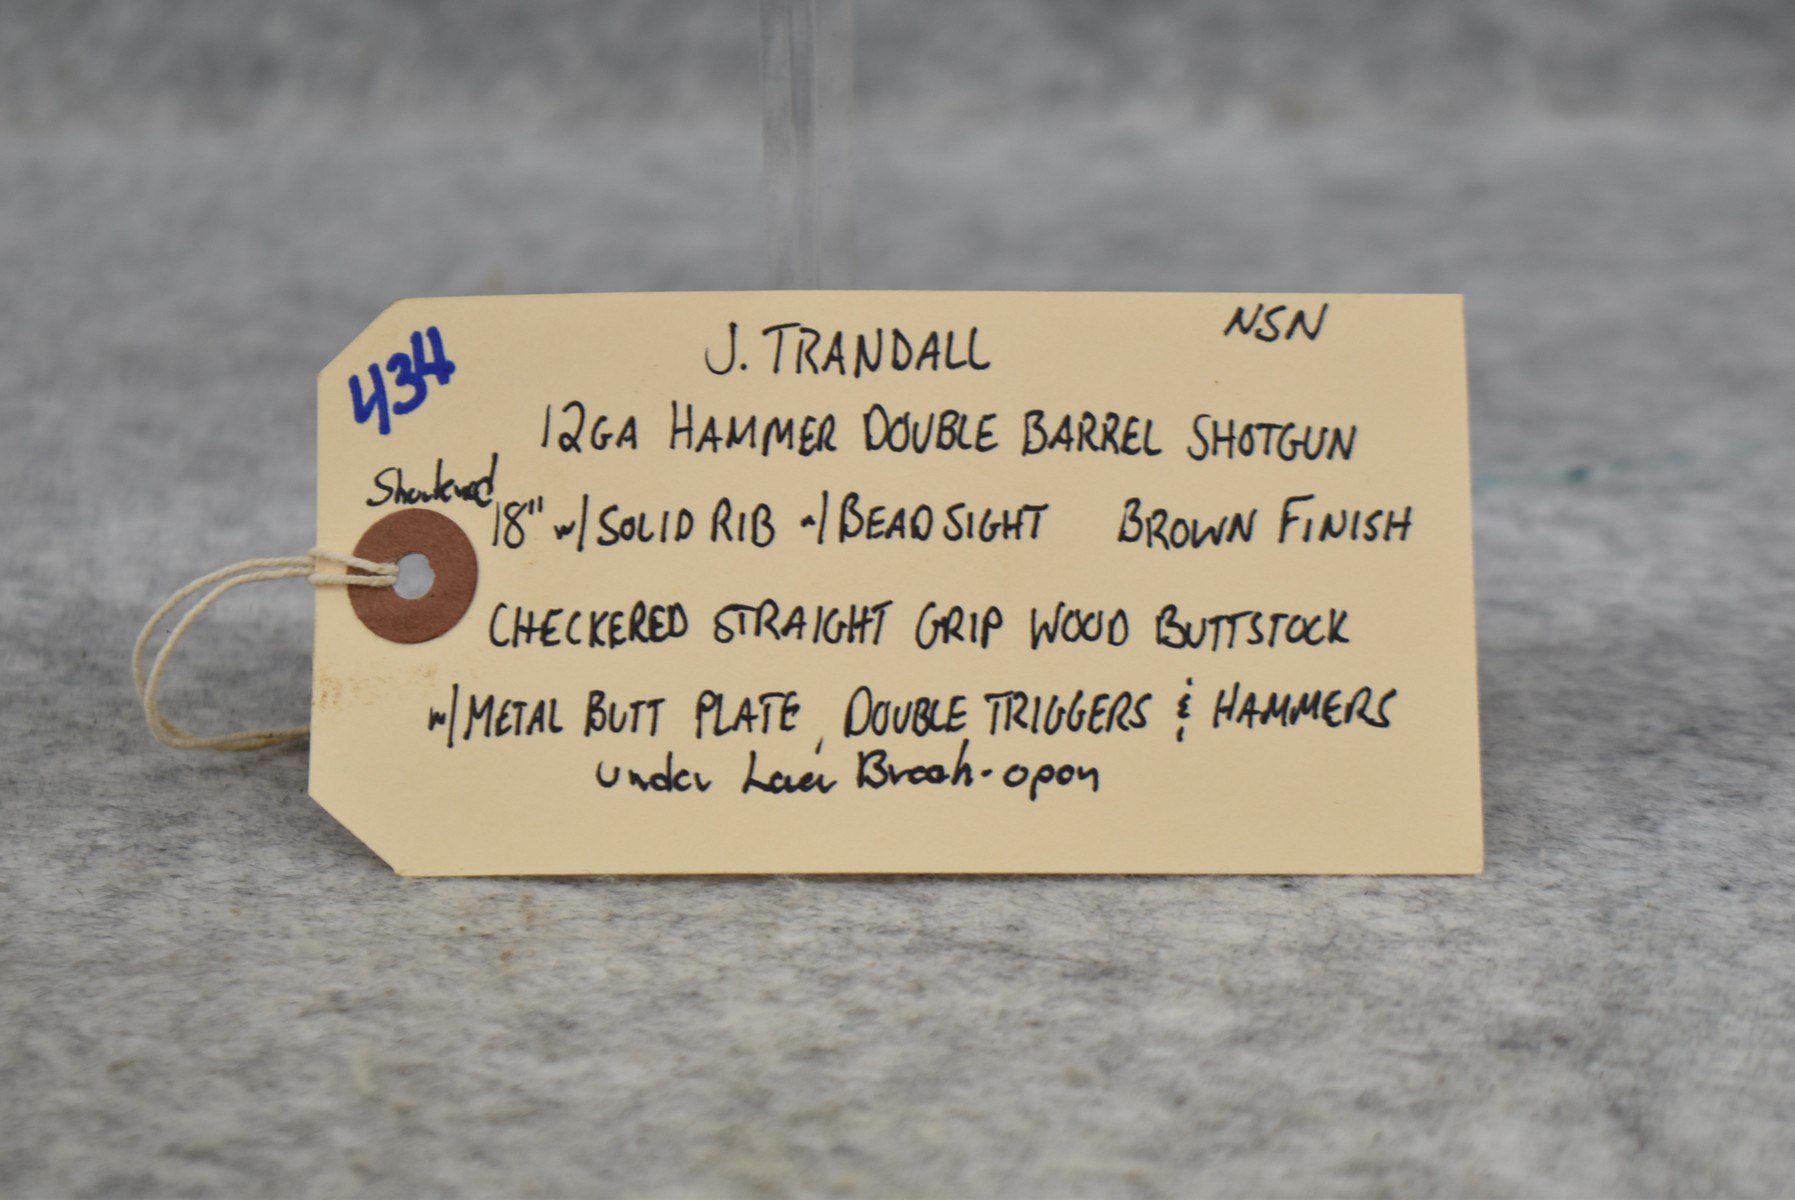 434
J. TRANDALL
NSN
12GA HAMMER DOUBLE BARREL SHOTGUN
Shortened
18" w/ SOLID RIB w/ BEAD SIGHT BROWN FINISH
CHECKERED STRAIGHT GRIP WOOD BUTTSTOCK
w/ METAL BUTT PLATE, DOUBLE TRIGGERS & HAMMERS
under Laver Breah-open